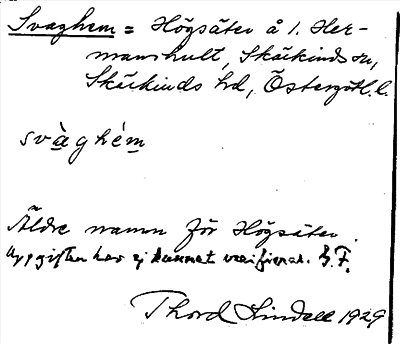 Svaghem = Högsäter å 1. Her-
manshult, Skärkinds sn,
Skärkinds hd, Östergötl. l.
svàghém
Äldre namn för Högsäter.
Uppgiften har ej kunnat verifieras. G. F.
Thord Lindell 1929